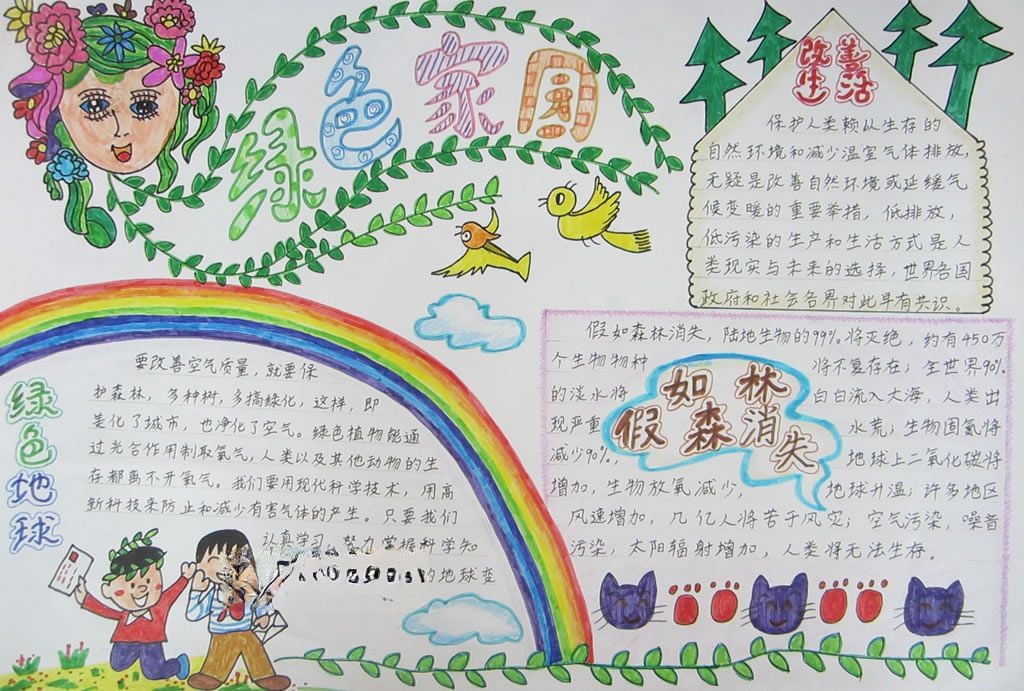 绿色家园
改善
生活
保护人类赖以生存的
自然环境和减少温室气体排放,
无疑是改善自然环境或延缓气
候变暖的重要举措,低排放,
低污染的生产和生活方式是人
类现实与未来的选择,世界各国
政府和社会各界对此早有共识。
绿色地球
要改善空气质量,就要保
护森林,多种树,多搞绿化,这样,即
美化了城市,也净化了空气。绿色植物能通
过光合作用制取氧气,人类以及其他动物的生
存都离不开氧气。我们要用现代科学技术,用高
新科技来防止和减少有害气体的产生。只要我们
认真学习,努力掌握科学知
的地球变
假如森林消失
假如森林消失,陆地生物的99%将灭绝,约有450万
个生物物种将不复存在;全世界90%
的淡水将白白流入大海,人类出
现严重水荒;生物固氮将
减少90%,地球上二氧化碳将
增加,生物放氧减少,地球升温;许多地区
风速增加,几亿人将苦于风灾;空气污染,噪音
污染,太阳辐射增加,人类将无法生存。